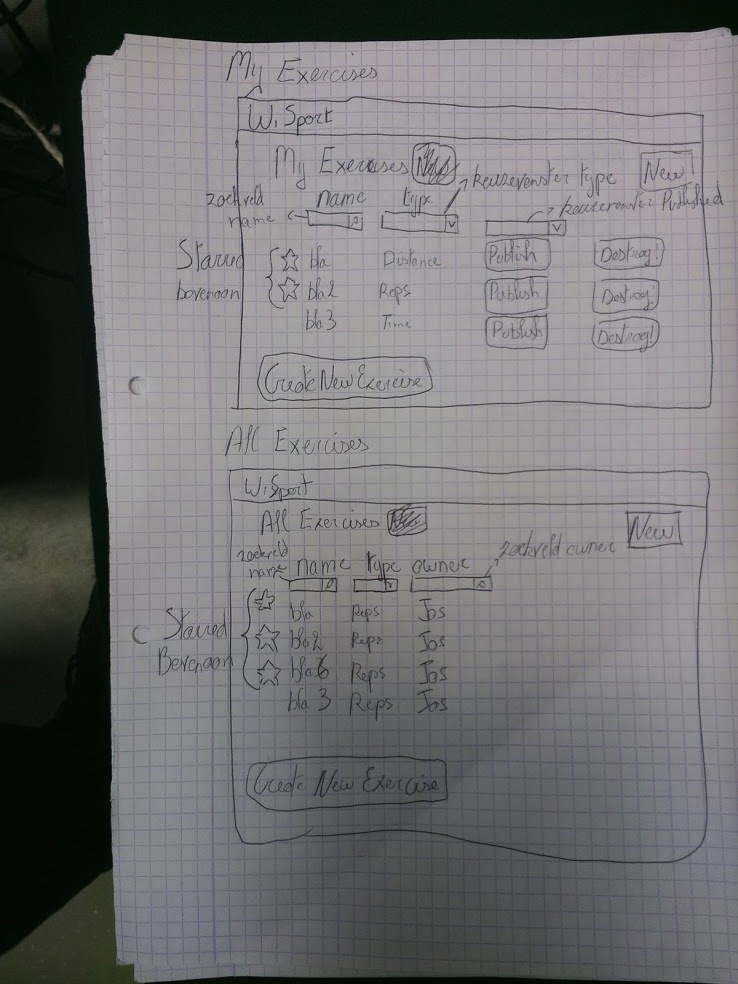 My Exercises
WiSport
My Exercises New
keuzevenster type
New
zoekveld name
name type
keuzevenster Published
Starred bovenaan
bla Distance Publish Destroy!
bla2 Reps Publish Destroy!
bla3 Time Publish Destroy!
Create New Exercise
All Exercises
WiSport
All Exercises
New
zoekveld name
name type owner
zoekveld owner
Starred Bovenaan
bla Reps Jos
bla2 Reps Jos
bla6 Reps Jos
bla 3 Reps Jos
Create New Exercise